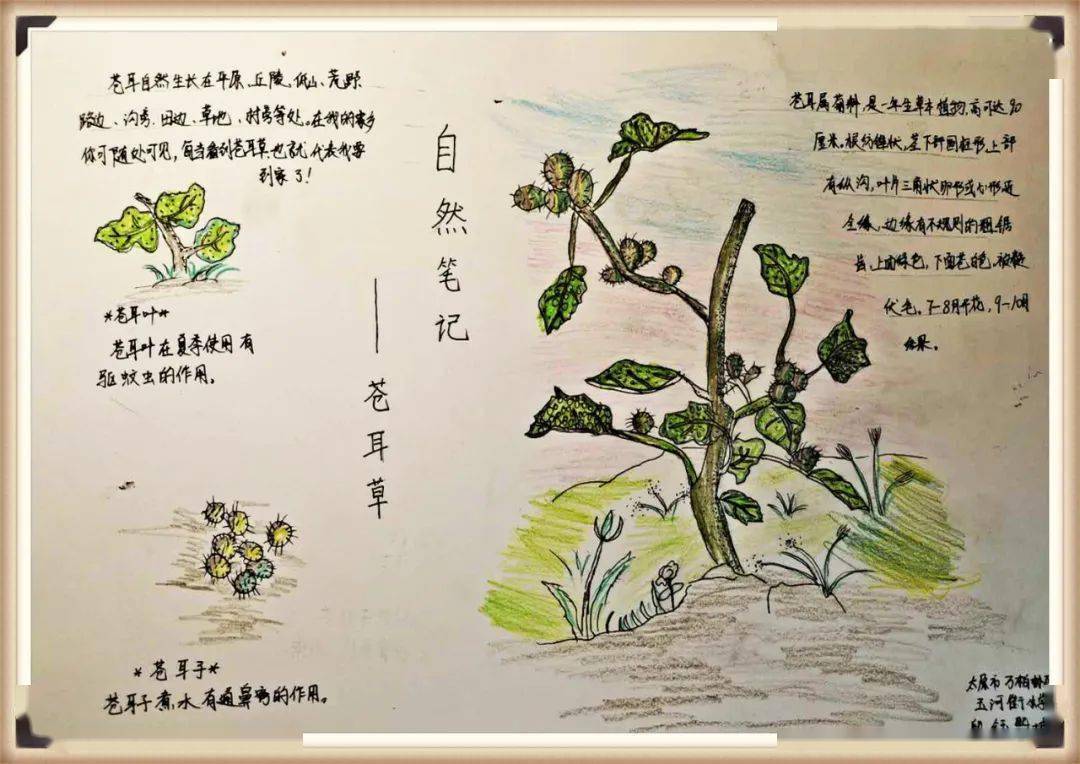 苍耳自然生长在平原、丘陵、低山、荒野
路边、沟旁、田边、草地、村旁等处。在我的家乡
你可随处可见，每当看到苍耳草也就代表我要
到家了！
*苍耳叶*
苍耳叶在夏季使用有
驱蚊虫的作用。
*苍耳子*
苍耳子煮水有通鼻窍的作用。
自然笔记
——苍耳草
苍耳属菊科，是一年生草本植物，高可达90
厘米。根纺锤状，茎下部圆柱形，上部
有纵沟，叶片三角状卵形或心形近
全缘，边缘有不规则的粗锯
齿，上面绿色，下面苍白色，被糙
伏毛。7-8月开花，9-10月
结果。
太原市万柏林
五河街小学